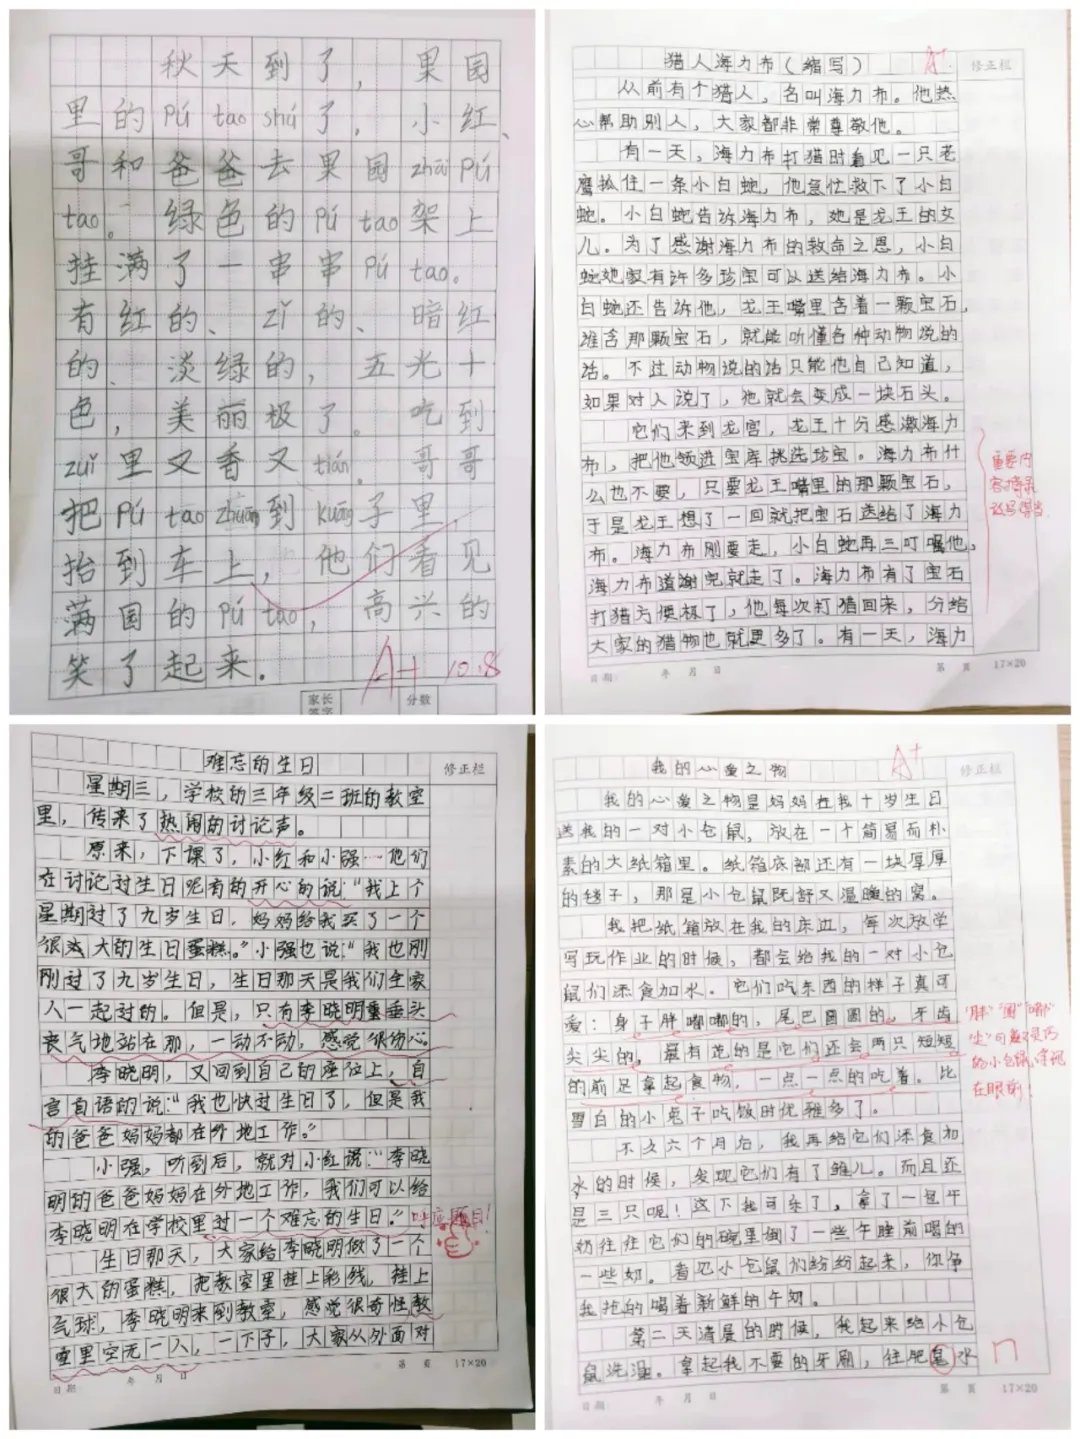 秋天到了，果园
里的Pú tao shú了，小红、
哥和爸爸去果园zhāi Pú
tao。绿色的Pú tao架上
挂满了一串串Pú tao。
有红的、Zǐ的、暗红
的、淡绿的，五光十
色，美丽极了。吃到
zuǐ里又香又tián。哥哥
把Pú tao zhuāng到kuāng子里，
抬到车上，他们看见
满园的Pú tao，高兴的
笑了起来。
A+ 10.8
家长
签字
分数
猎人海力布（缩写）
A+
修正栏
从前有个猎人，名叫海力布。他热
心帮助别人，大家都非常尊敬他。
有一天，海力布打猎时看见一只老
鹰抓住一条小白蛇，他急忙救下了小白
蛇。小白蛇告诉海力布，她是龙王的女
儿。为了感谢海力布的救命之恩，小白
蛇她家有许多珍宝可以送给海力布。小
白蛇还告诉他，龙王嘴里含着一颗宝石，
谁含那颗宝石，就能听懂各种动物说的
话。不过动物说的话只能他自己知道，
如果对人说了，他就会变成一块石头。
它们来到龙宫，龙王十分感激海力
布，把他领进宝库挑选珍宝。海力布什
么也不要，只要龙王嘴里的那颗宝石，
于是龙王想了一回就把宝石送给了海力
布。海力布刚要走，小白蛇再三叮嘱他，
海力布道谢完就走了。海力布有了宝石
打猎方便极了，他每次打猎回来，分给
大家的猎物也就更多了。有一天，海力
重要内
日期： 年 月 日 第 页 17×20
难忘的生日
修正栏
星期三，学校的三年级二班的教室
里，传来了热闹的讨论声。
原来，下课了，小红和小强…他们
在讨论过生日呢有的开心的说：“我上个
星期过了九岁生日，妈妈给我买了一个
很大的生日蛋糕。”小强也说：“我也刚
刚过了九岁生日，生日那天是我们全家
人一起过的。但是，只有李晓明垂头
丧气地站在那，一动不动，感觉很伤心。
李晓明，又回到自己的座位上，自
言自语的说：“我也快过生日了，但是我
的爸爸妈妈都在外地工作。”
小强，听到后，就对小红说：“李晓
明的爸爸妈妈在外地工作，我们可以给
李晓明在学校里过一个难忘的生日。”
呼应题目！
生日那天，大家给李晓明做了一个
很大的蛋糕，把教室里挂上彩线，挂上
气球，李晓明来到教室，感觉很奇怪，教
室里空无一人，一下子，大家从外面对
日期： 年 月 日 第 页 17×20
我的心爱之物
A+
修正栏
我的心爱之物是妈妈在我十岁生日
送我的一对小仓鼠，放在一个简易而朴
素的大纸箱里。纸箱底部还有一块厚厚
的毯子，那是小仓鼠既舒又温暖的窝。
我把纸箱放在我的床边，每次放学
写玩作业的时候，都会给我的一对小仓
鼠们添食加水。它们吃东西的样子真可
爱：身子胖嘟嘟的，尾巴圆圆的，牙齿
尖尖的，最有趣的是它们还会两只短短
的前足拿起食物，一点一点的吃着。比
雪白的小兔子吃饭时优雅多了。
在眼前！
不久六个月后，我再给它们添食加
水的时候，发现它们有了雏儿。而且还
是三只呢！这下我可乐了，拿了一包牛
奶往在它们的碗里倒了一些午睡前喝的
一些奶。看见小仓鼠们纷纷起来，你争
我抢的喝着新鲜的牛奶。
第二天清晨的时候，我起来给小仓
鼠洗澡。拿起我不要的牙刷，往肥皂水
日期： 年 月 日 第 页 17×20